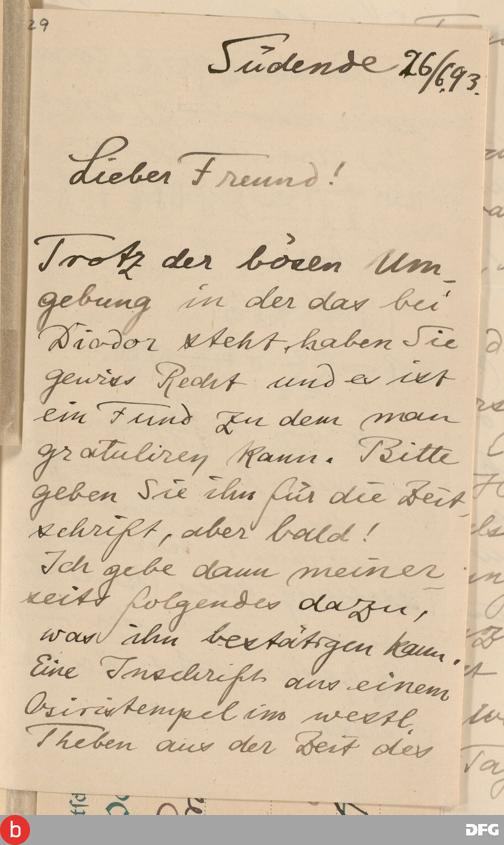 29
Südende 26/6.93.
Lieber Freund!
Trotz der bösen Um-
gebung in der das bei
Diodor steht, haben Sie
gewiss Recht und es ist
ein Fund zu dem man
gratuliren kann. Bitte
geben Sie ihn für die Zeit-
schrift, aber bald!
Ich gebe dann meiner-
seits folgendes dazu,
was ihn bestätigen kann.
Eine Inschrift aus einem
Osiristempel im westl.
Theben aus der Zeit des
b
DFG